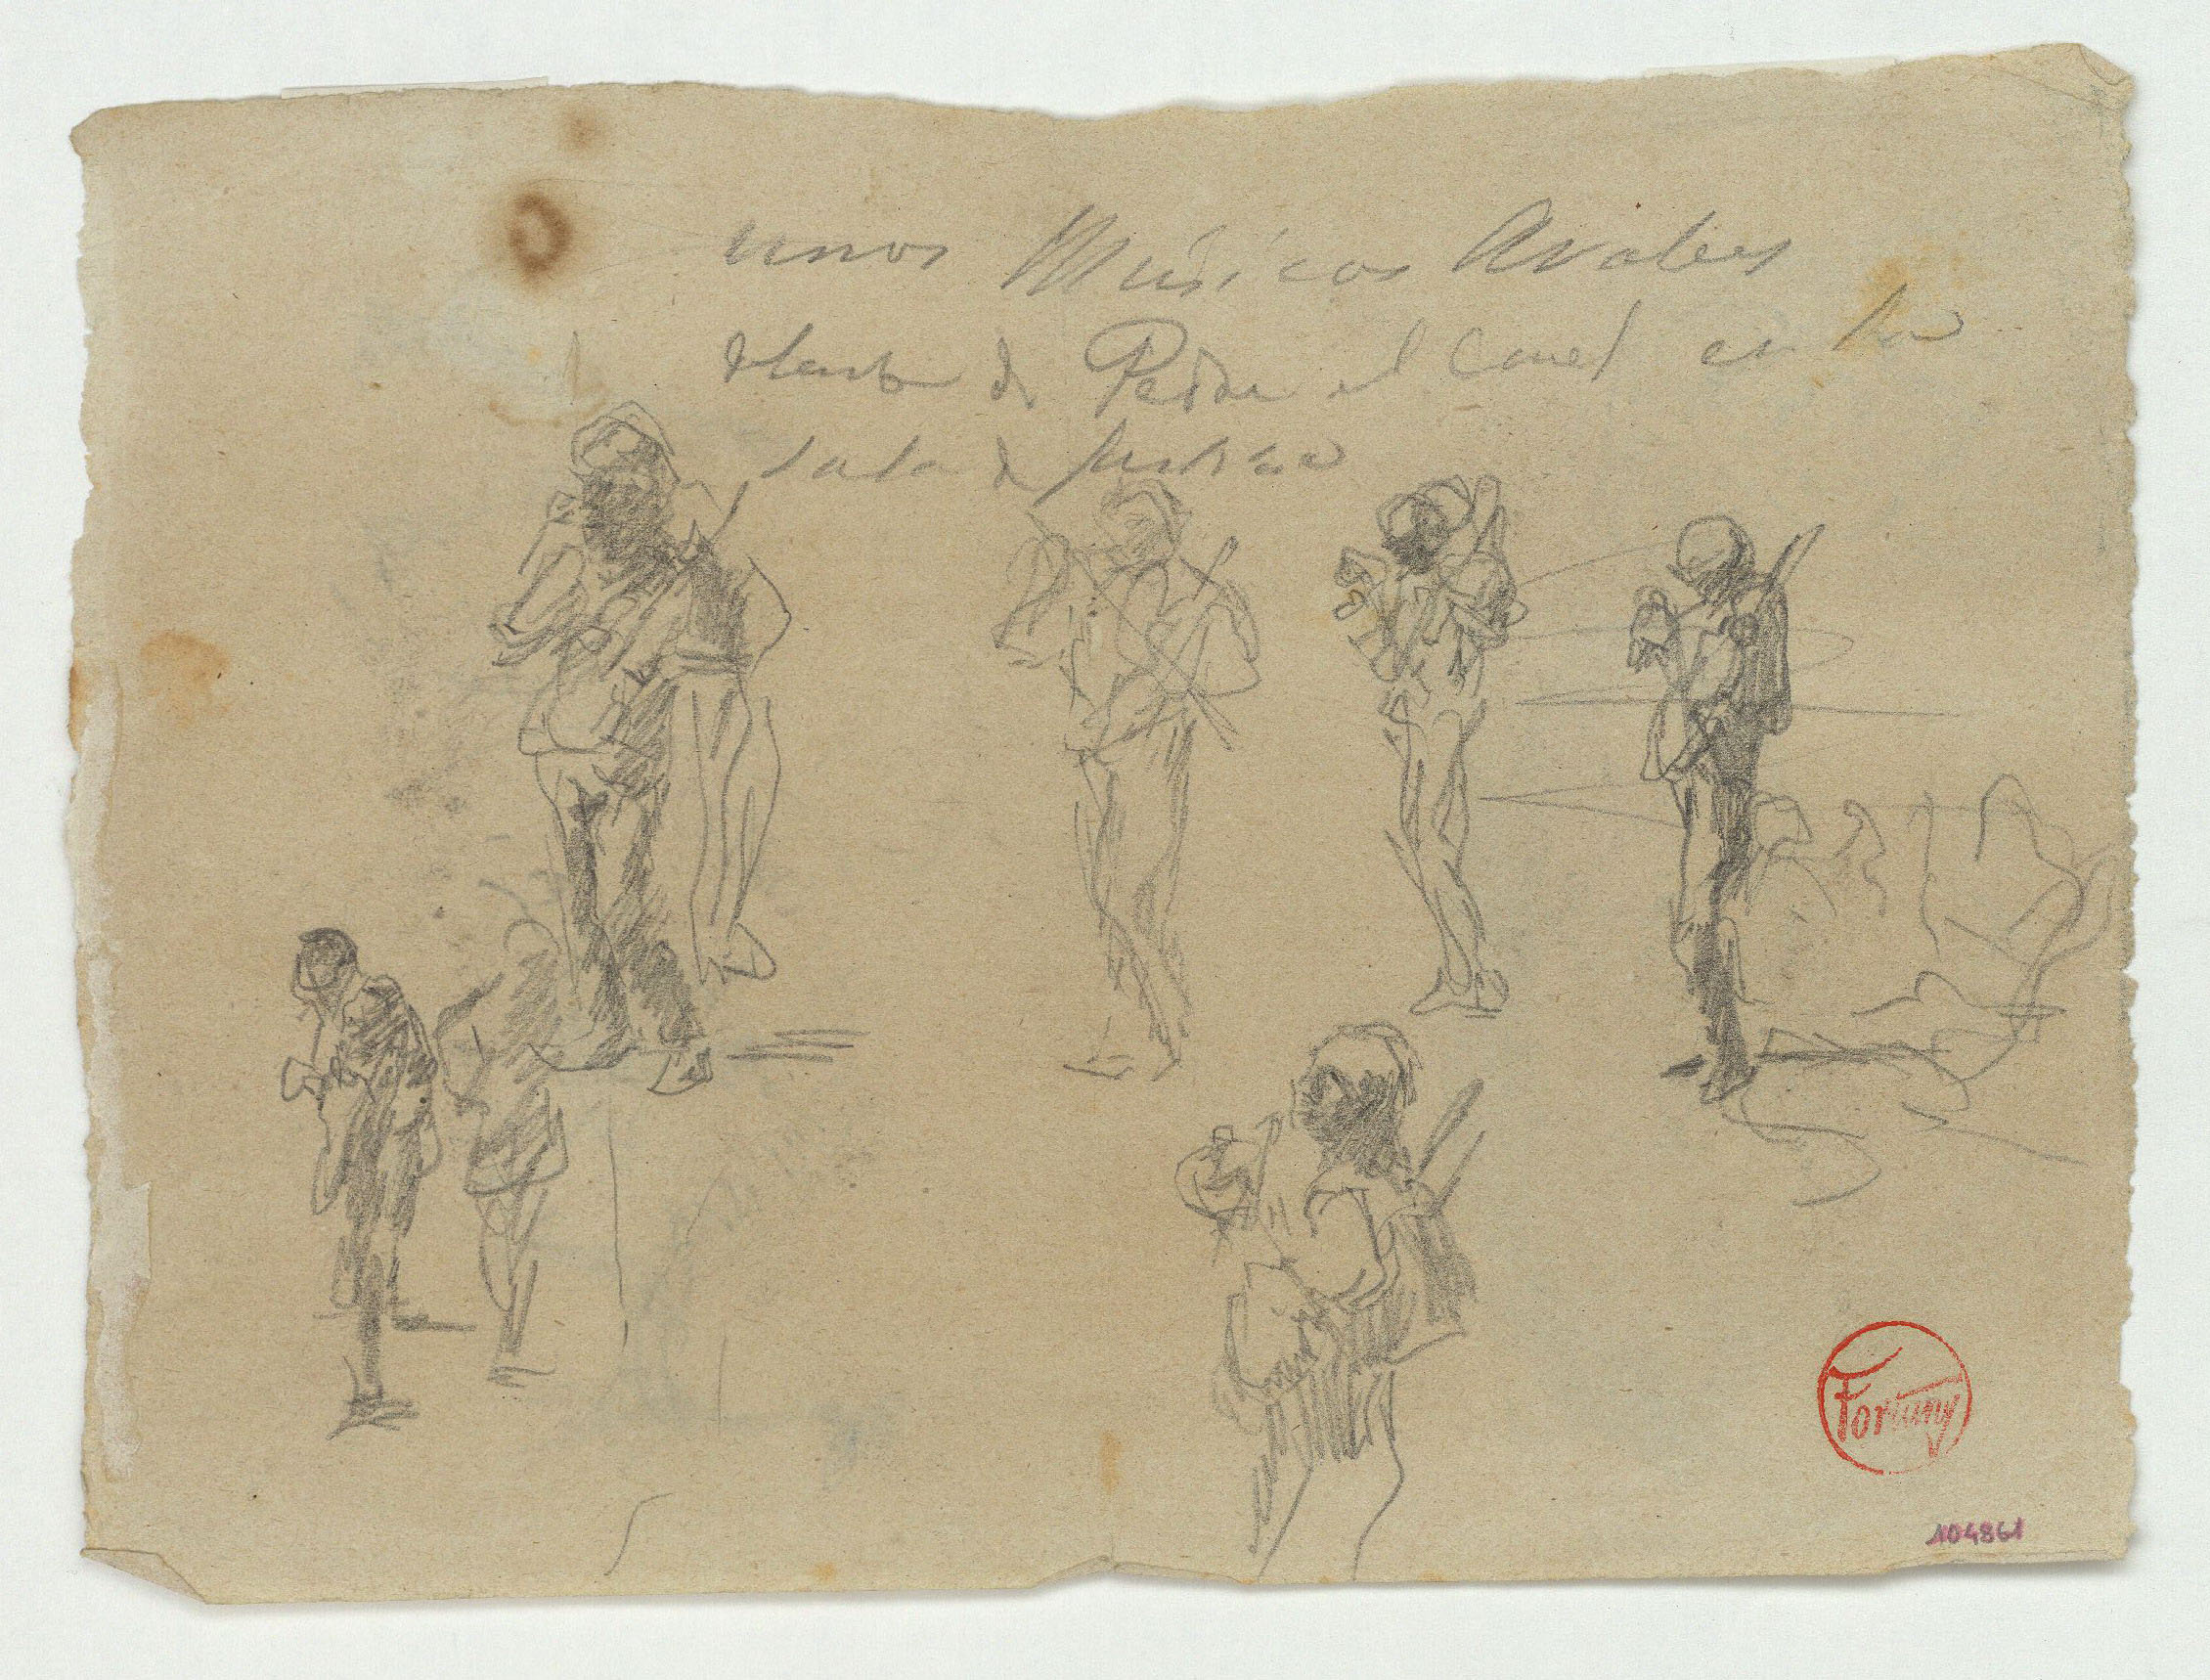 unos Músicos Arabes
delante de Pedro el Cruel en la
sala de Justicia
Fortuny
104861